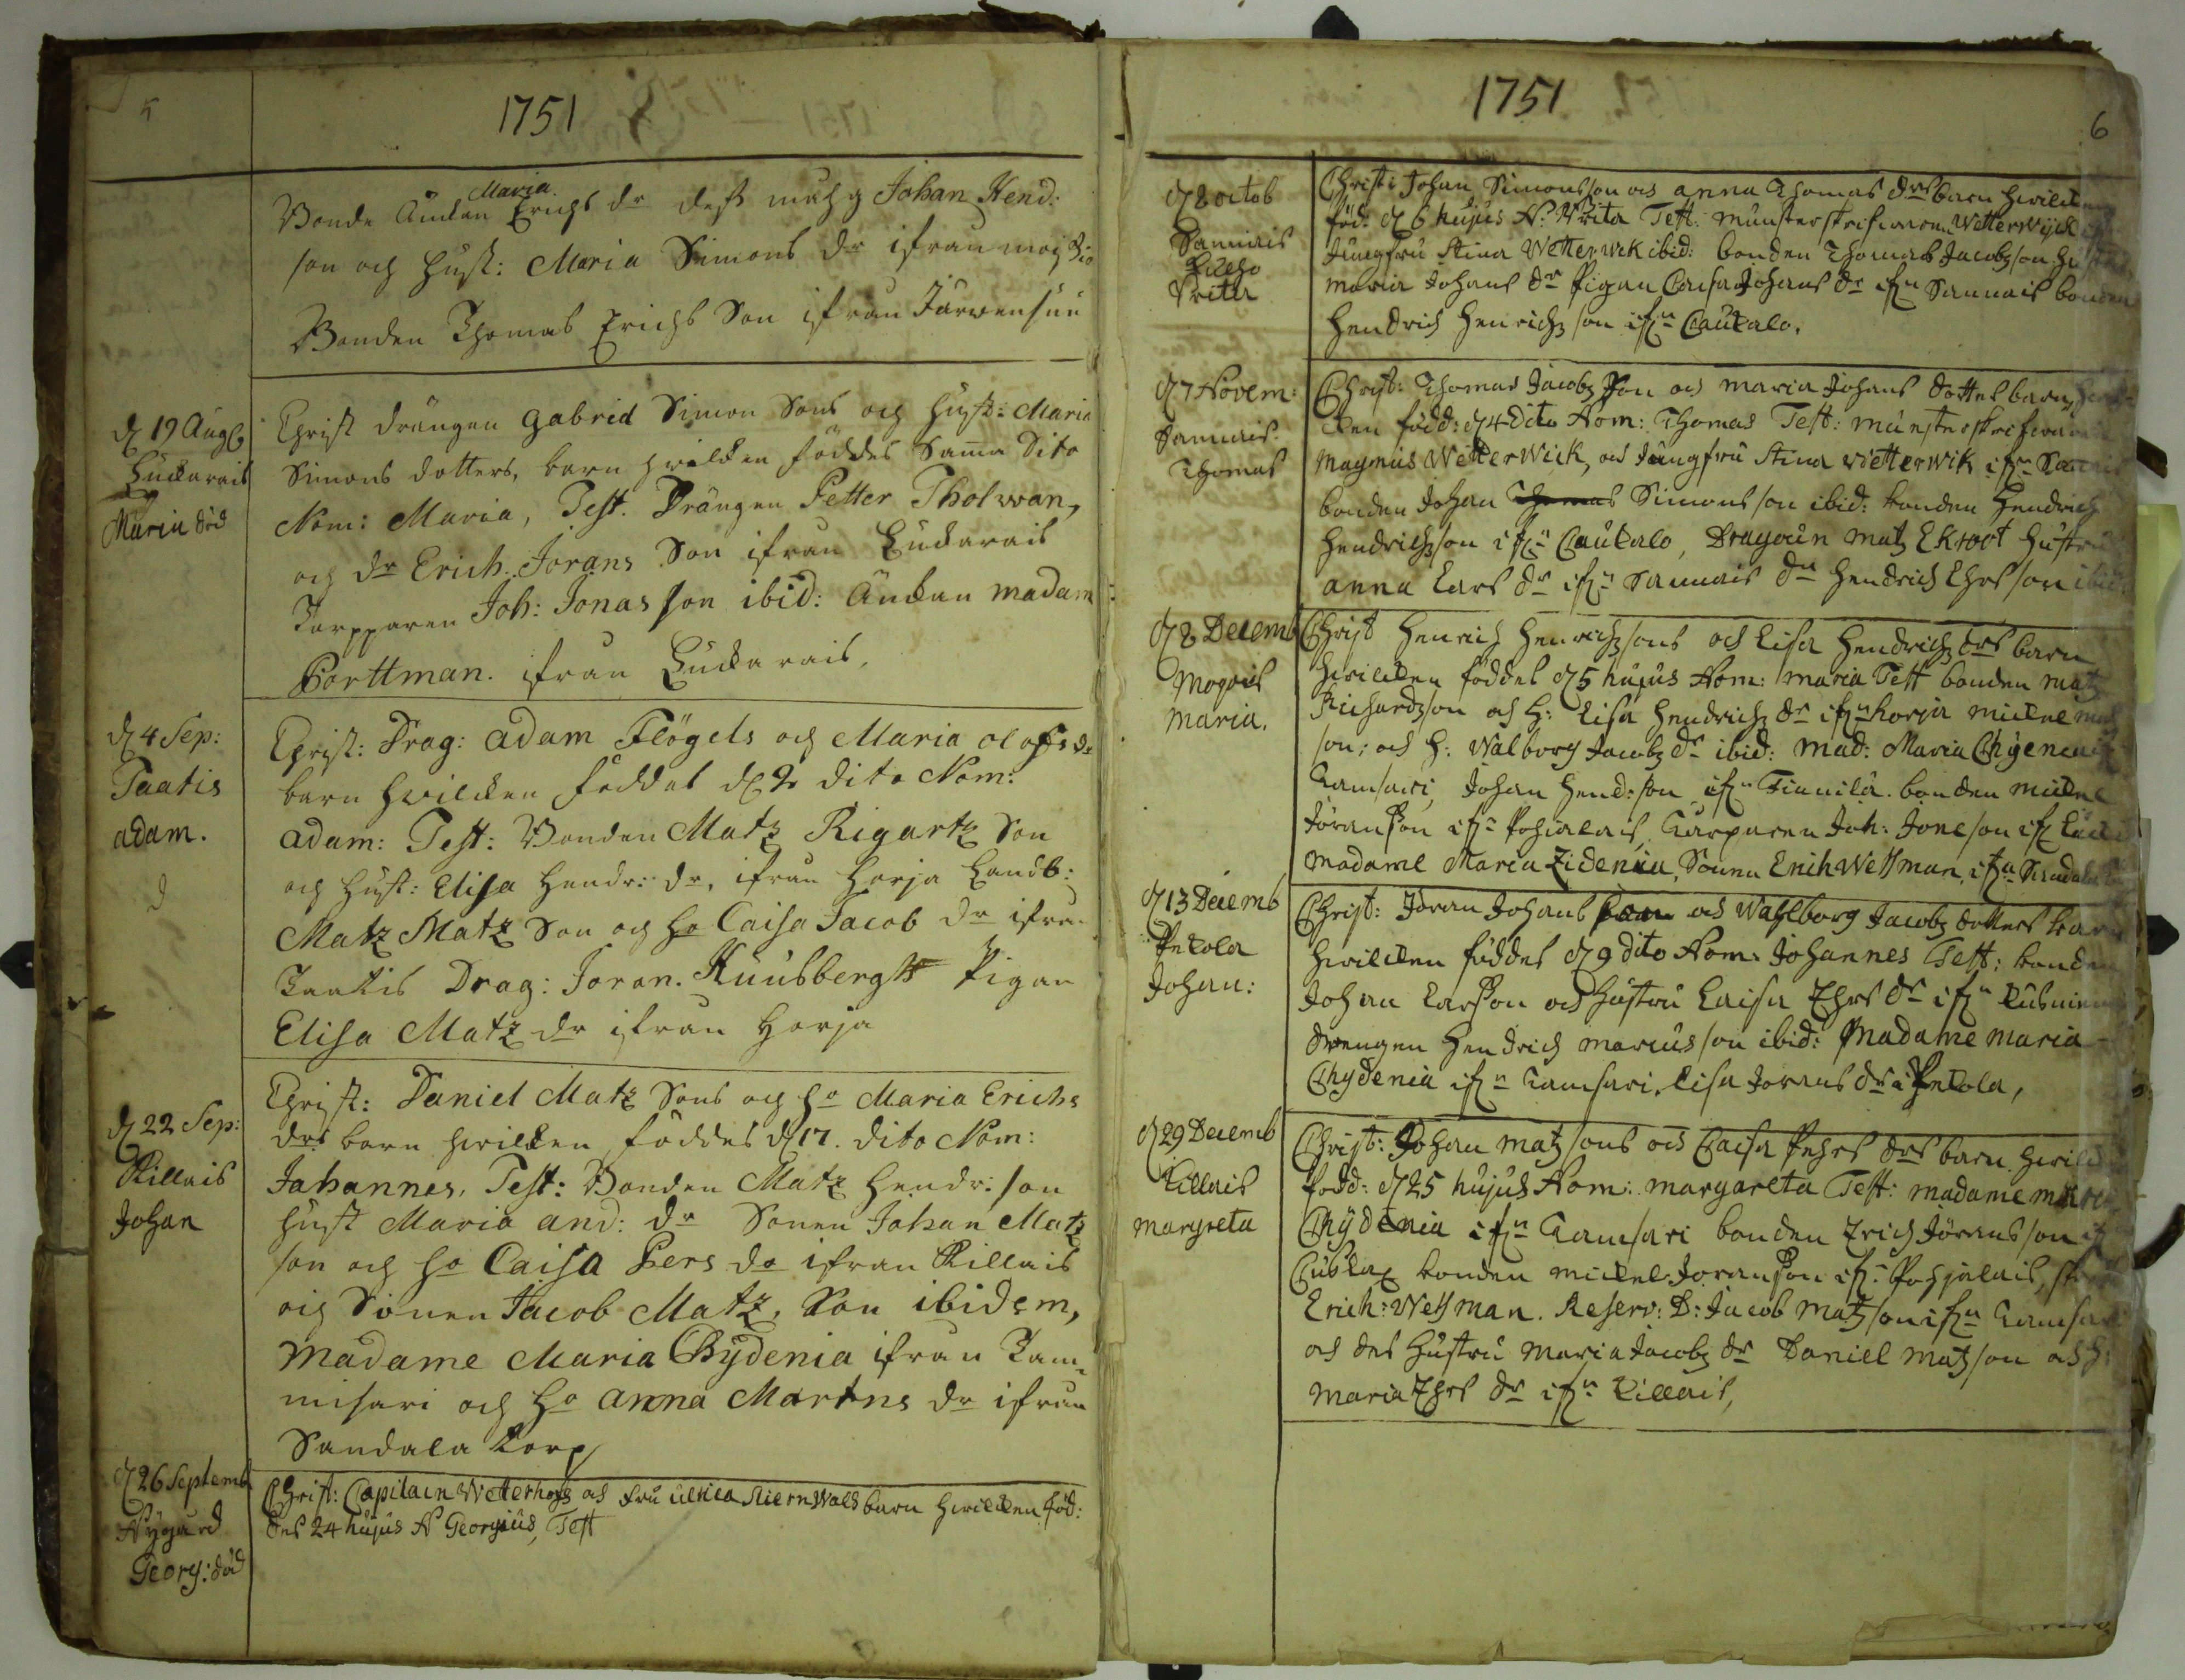 5
1751
Bonde Änkan Maria Erichs dr dess måhg Johan Hend:
son och hust: Maria Simons dr ifrån
Bonden Thomas Erichs Son ifrån Järwensuu
d 19 Aug
Luckarais
Maria död
Christ drängen gabriel Simon Sons och hust: Maria
Simons dotters, barn hvilcken föddes Sama dito
Nom: Maria, Test. Drängen Petter Tholwan,
och dr Erich Jorans Son ifrån Luckarais
Torpparen Joh: Jonas son ibid: Änckan madam
Porttman. ifrån Luckarais,
d 4 Sep:
Taatis
adam.
d
Christ: Drag: adam Flögels och Maria olofs dr
barn hvilcken föddes d 2 dito Nom:
adam: Test: Bonden Matz Rigartz Son
och Hust: Elisa Hendr: dr, ifrån Horja Landb:
Matz Matz Son och ho Caisa Jacob dr ifrån
Taatis Drag: Joran. Kuusbergh Pigan
Elisa Matz dr ifrån Horja
d 22 Sep:
Killais
Johan
Christ: Daniel Matz Sons och ho Maria Erichs
drs barn hvilcken föddes d 17. dito Nom:
Johannes, Test: Bonden Matz Hendr: son
hust Maria and: dr Sonen Johan Matz
son och ho Caisa Pers dr ifrån Killais
och Sonen Jacob Matz, Son ibidem,
Madame Maria Chydenia ifrån Tam=
misari och ho anna Martns dr ifrån
Sandala Torp
d 26 Septemb
Nygård
Georg: död
Christ: Capitain Wetterhoffs och fru ulrica Stiernwals barn hwilcken föd:
des 24 hujus N Georgius, Test
1751
6
d 8 octob
Sannais
Brita
Christ: Johan Simonsson och anna Thomas drs barn hwilcken
föd: d 6 hujus N: Brita Test: munsterskrifwaren Wetterwijck
Jungfru Stina Wetterwik ibid: bonden Thomas Jacobs son
maria Johans dr Pigan Caisa Johans dr ifn Sannais bonden
Hendrich Henrichs son ifn Caukalo.
d 7 Novem:
Sannais.
Thomas
Christ: Thomas Jacobs Son och maria Johans dotters barn,
cken född: d 4 dito Nom: Thomas Test: munsterskrifwaren
Magnus WetterWick, och Jungfru Stina Wetterwik ifrn
bonden Johan Thomas Simons son ibid: bonden Hendrich
Hendrichsson ifn Caukalo, Dragoun Matz Ekroot hustru
anna Lars dr ifn Sannais dn Hendrich Ehrs son ibid:
d 8 Decemb
maria.
Christ Henrich Henrichssons och Lisa Hendrichs drs barn
hwilcken föddes d 5 hujus Nom: maria Test bonden matz
Richardsson och H: Lisa Hendrichs dr ifn Horja mickel matz
son; och H: Walborg Jacobs dr ibid: Mad: Maria Chydenia
Tamsari, Johan Hend: son ifn Finnilä. bonden mickel
Jöransson ifn Pohjalais, Torparen Joh: Jonsson if
madame Maria Zidenia, Sonen Erich Wessman, ifn Sandala
d 13 Decemb
Pekola
Johan:
Christ: Jöran Johans och Wahlborg Jacobs dotters barn
hwilcken föddes d 9 dito Nom: Johannes Test: bonden
Johan Larsson och hustru Caisa Ehrs dr ifn
drengen Hendrich marcusson ibid: Madame maria
Chydenia ifn Tamsari. Lisa Jorans dr i Pekola,
d 29 Decemb
Killais
margreta
Christ: Johan matz sons och Caisa Pehrs drs barn hwilck
född: d 25 hujus Nom: margareta Test: madame maria
Chydenia ifn Tamsari bonden Erich Jörans son if
bonden mickel Joransson ifn Pohjalais,
Erich: Wessman. Reserv: D: Jacob matz son ifn Tamsari
och des Hustru Maria Jacobs dr Daniel matz son och H:
maria Ehrs dr ifn Killais,